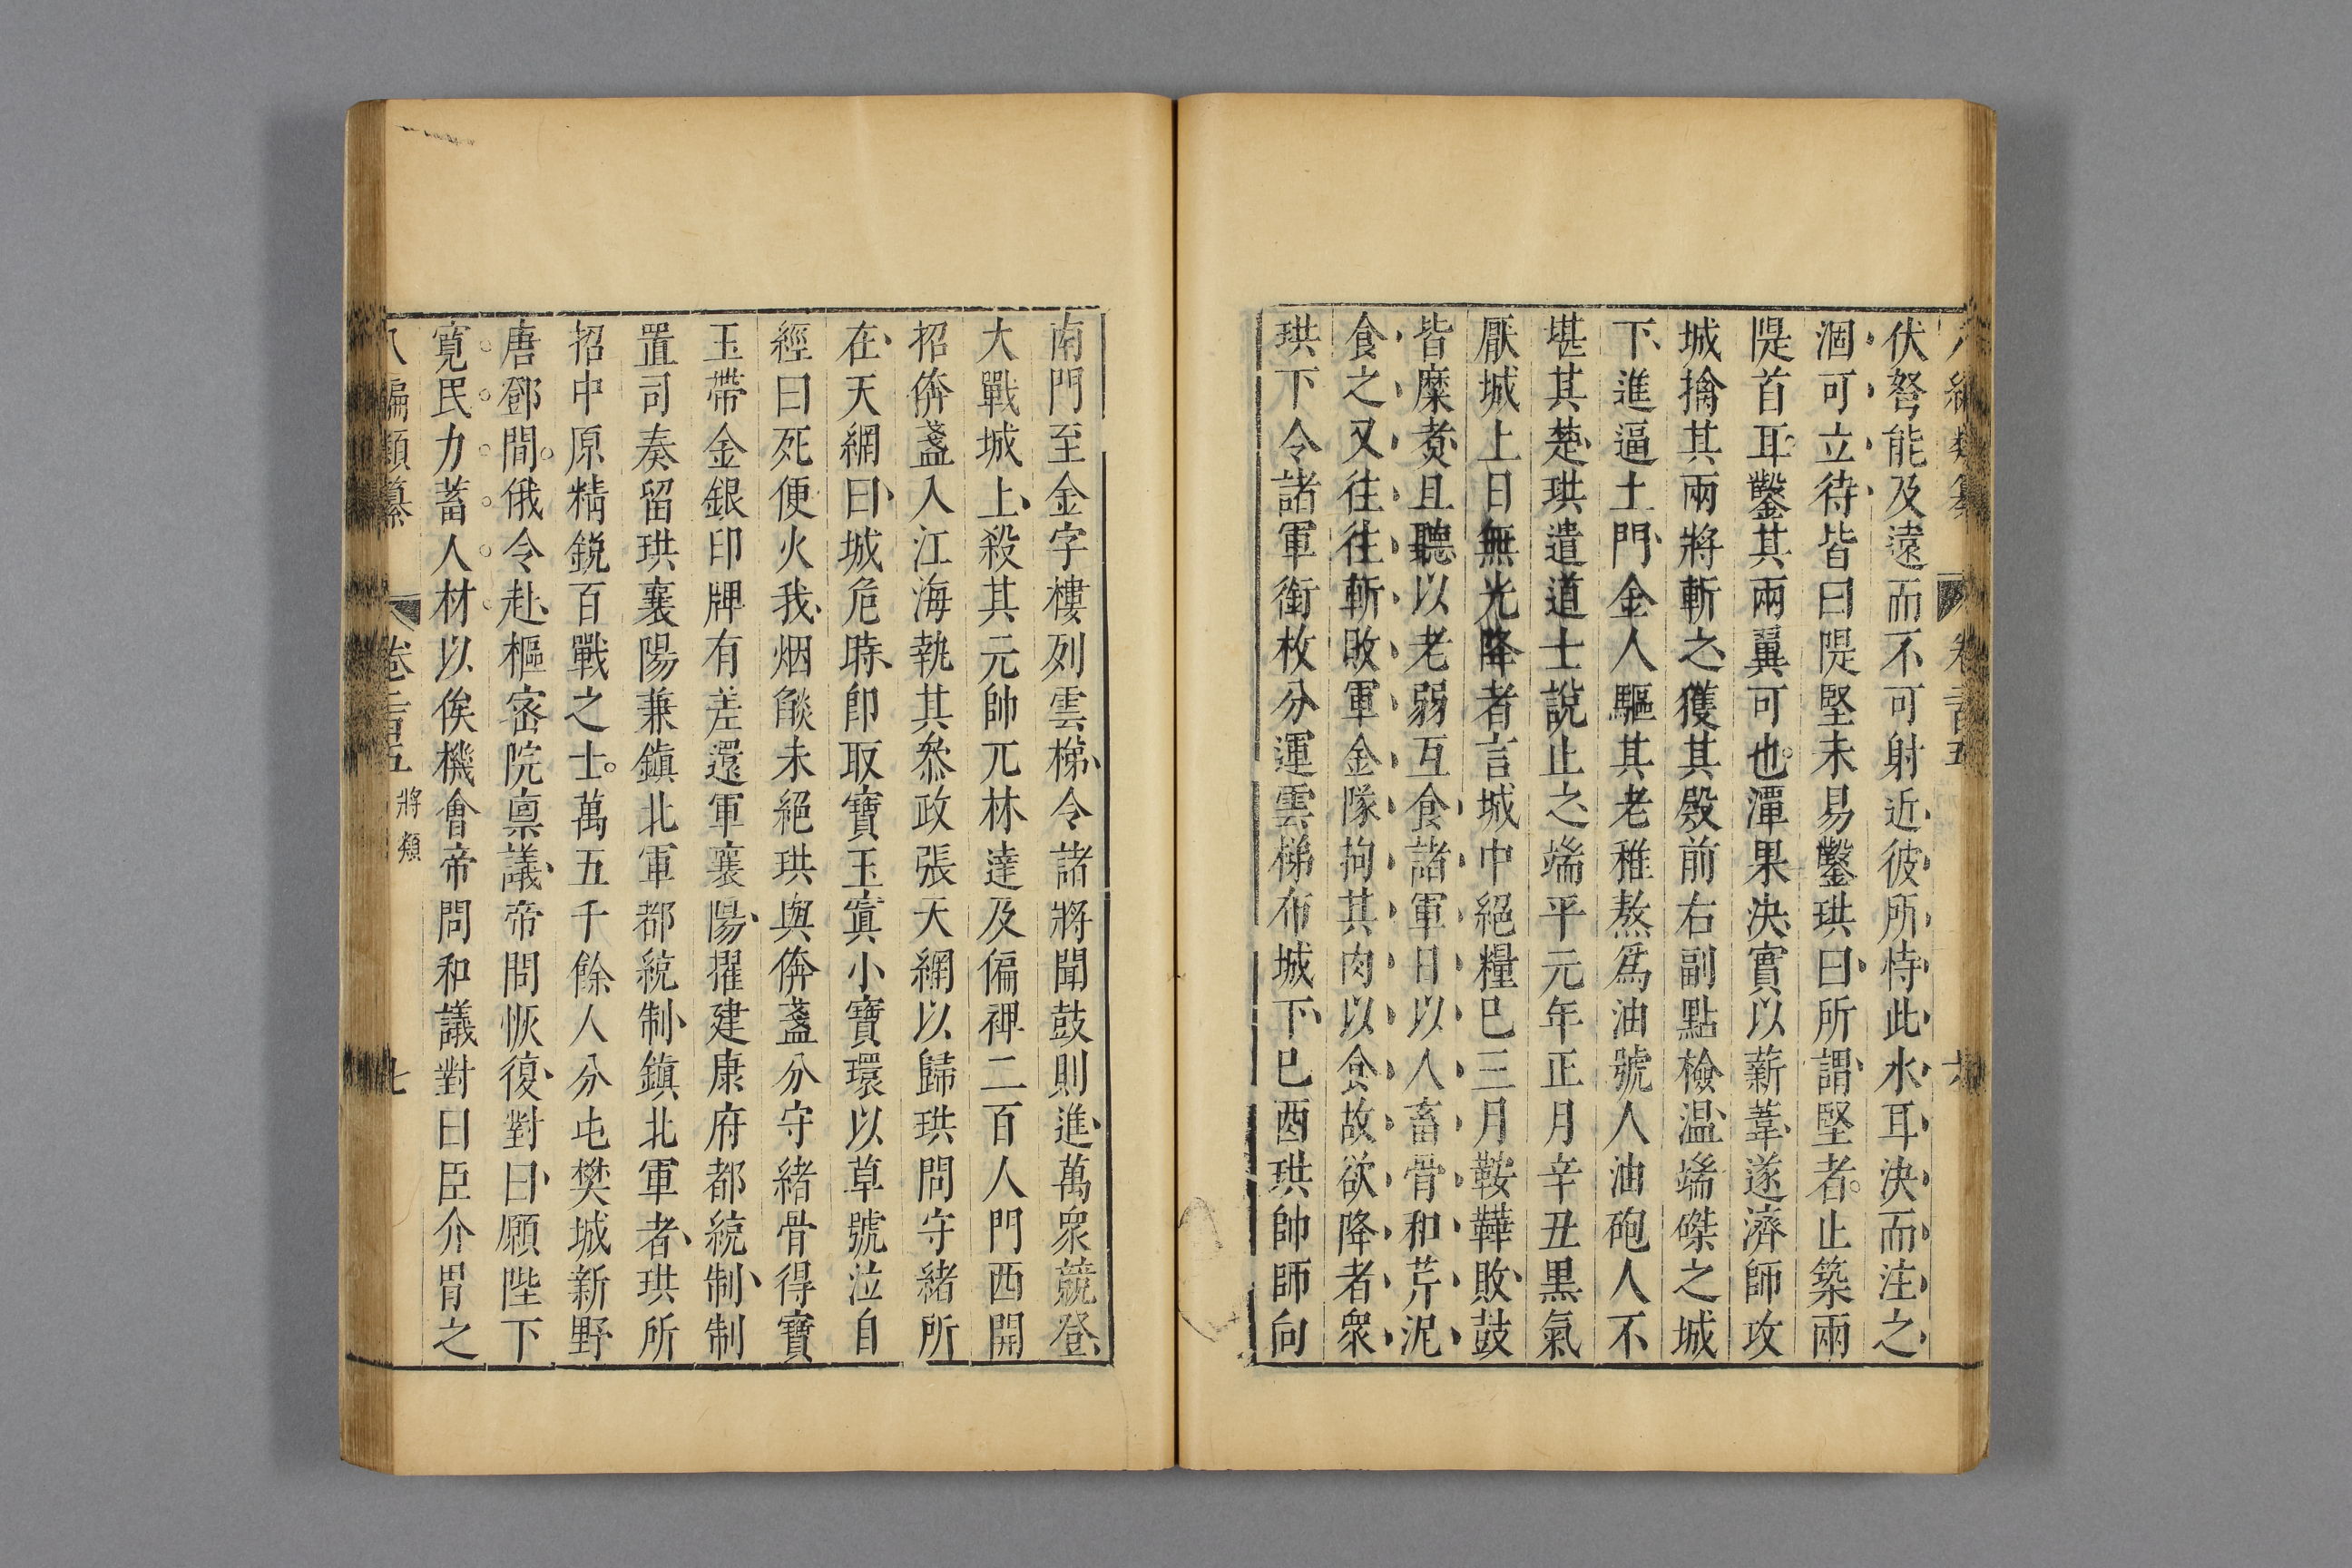 伏弩能及遠而不可射近彼所恃此水耳決而注之
涸可立待皆曰隄堅未易鑿珙曰所謂堅者止築兩
隄首耳鑿其兩翼可也潭果決實以薪葦遂濟師攻
城擒其兩將斬之獲其殿前右副點檢温端磔之城
下進逼土門金人驅其老稚熬爲油號人油砲人不
堪其楚珙遣道士説止之端平元年正月辛丑黑氣
厭城上日無光降者言城中絕糧巳三月鞍韡敗鼓
皆糜煑且聽以老弱互食諸軍日以人畜骨和芹泥
食之又往往斬敗軍金隊拘其肉以食故欲降者衆
珙下令諸軍銜枚分運雲梯布城下巳酉珙帥師向
南門至金字樓列雲梯令諸將聞鼓則進萬衆競登
大戰城上殺其元帥兀林達及偏裨二百人門西開
招倴盞入江海執其叅政張天網以歸珙問守緒所
在天網曰城危時即取寶玉寘小寶環以草號泣自
經曰死便火我烟燄未絕珙與倴盞分守緒骨得寶
玉帶金銀印牌有差還軍襄陽擢建康府都統制制
置司奏留珙襄陽兼鎮北軍都統制鎮北軍者珙所
招中原精鋭百戰之士萬五千餘人分屯樊城新野
唐鄧間俄令赴樞密院禀議帝問恢復對曰願陛下
寬民力蓄人材以俟機會帝問和議對曰臣介冑之
八編類纂 卷二百五 將類 七